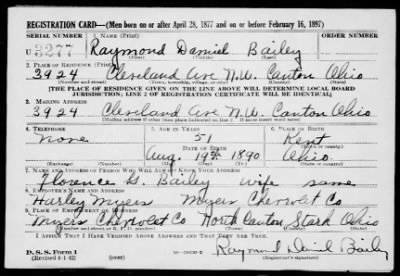 REGISTRATION CARD—(Men born on or after April 28, 1877 and on or before February 16, 1897)
SERIAL NUMBER 1. NAME (Print) ORDER NUMBER
U 3277 Raymond Daniel Bailey
2. PLACE OF RESIDENCE (Print)
3924 Cleveland Ave N.W. Canton Ohio
[THE PLACE OF RESIDENCE GIVEN ON THE LINE ABOVE WILL DETERMINE LOCAL BOARD
JURISDICTION; LINE 2 OF REGISTRATION CERTIFICATE WILL BE IDENTICAL]
3. MAILING ADDRESS
3924 Cleveland Ave N.W. Canton Ohio
[Mailing address if other than place indicated on line 2. If same insert word same]
4. TELEPHONE 5. AGE IN YEARS 6. PLACE OF BIRTH
none 51 Kent
DATE OF BIRTH
Aug. 19th 1890 Ohio
(Exchange) (Number) (Mo.) (Day) (Yr.) (State or country)
7. NAME AND ADDRESS OF PERSON WHO WILL ALWAYS KNOW YOUR ADDRESS
Florence G. Bailey wife same
8. EMPLOYER'S NAME AND ADDRESS
Harley Myers Myers Chevrolet Co
9. PLACE OF EMPLOYMENT OR BUSINESS
Myers Chevrolet Co North Canton Stark Ohio
(Number and street or R. F. D. number) (Town) (County) (State)
I AFFIRM THAT I HAVE VERIFIED ABOVE ANSWERS AND THAT THEY ARE TRUE.
D. S. S. Form 1
(Revised 4-1-42) Raymond Daniel Bailey